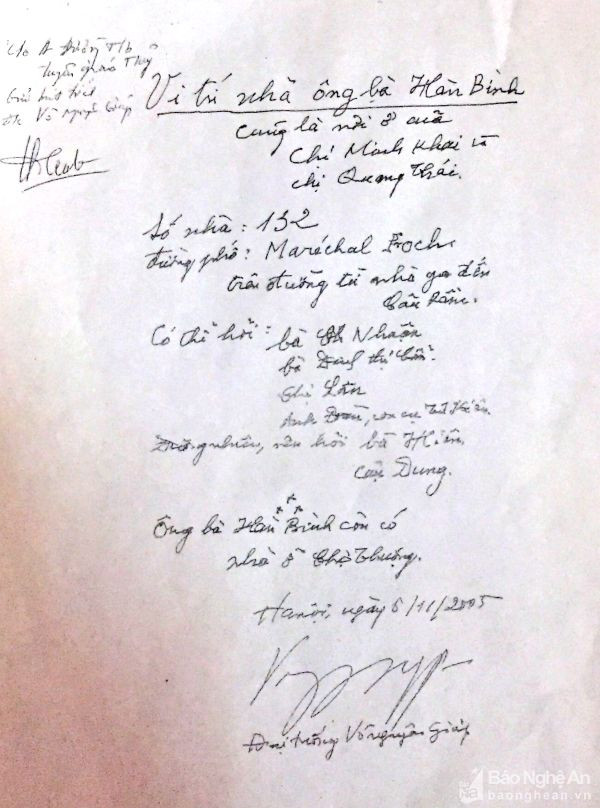 Tuyên giáo
Võ Nguyên Giáp
Vị trí nhà ông bà Hàn Bình
cũng là nơi ở của
Chị Minh Khai và
chị Quang Thái.
Số nhà: 132
đường phố: Maréchal Foch
trên đường từ nhà ga đến
Cầu Rầm.
Có thể hỏi: bà Nhuận
bà
Chị
Anh con cụ
Đương nhiên, nên hỏi bà Hiền,
cậu Dung.
Ông bà Hàn Bình còn có
nhà ở Chợ Thượng.
Hanội, ngày 6/11/2005
Đại tướng Võ Nguyên Giáp
Báo Nghệ An
baonghean.vn